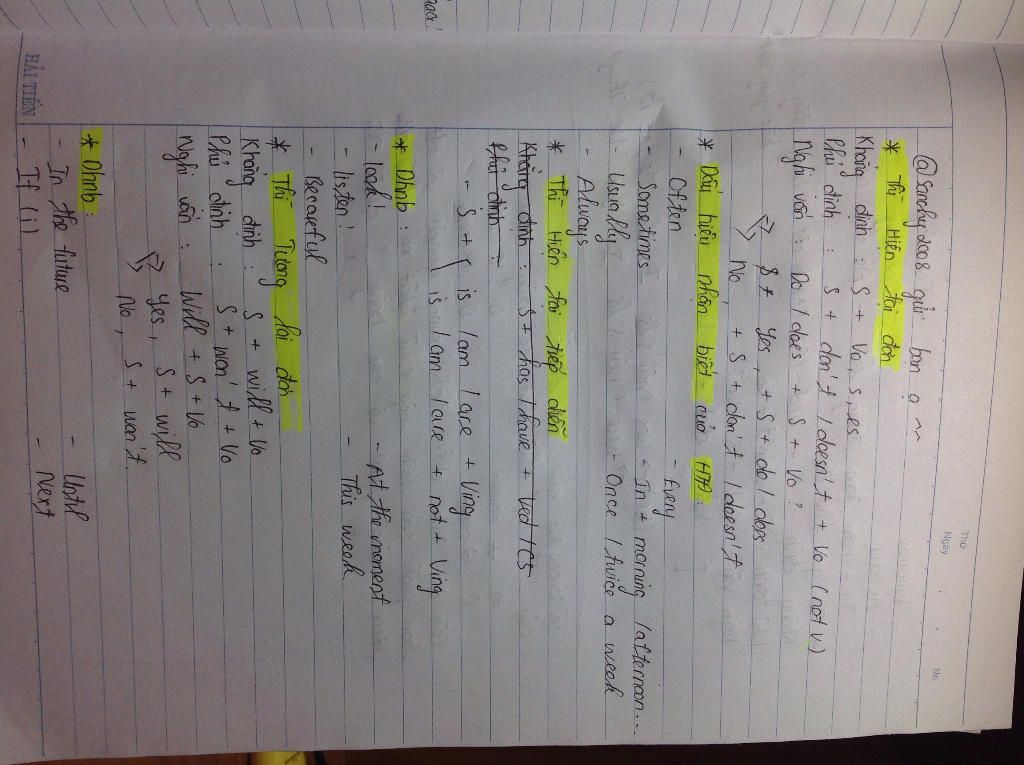 Thứ
Ngày
No.
@Sancky2008 gửi bạn ạ ~
* Thì Hiện tại đơn
Khẳng định : S + Vo, s, es
Phủ định : S + don't / doesn't + Vo (not V.)
Nghi vấn : Do / does + S + Vo ?
Yes, + S + do / does.
No, + S + don't / doesn't
* Dấu hiệu nhận biết của HTĐ :
- Often - Every
- Sometimes - In + morning / afternoon...
- Usually - Once / twice a week
- Always
* Thì Hiện tại tiếp diễn
Khẳng định : S + has / have + Ved / C3
Phủ định :
- S + is / am / are + Ving
is / am / are + not + Ving
* Dhnb :
- look ! - At the moment
- listen ! - This week
- Becareful
* Thì Tương lai đơn
Khẳng định : S + will + Vo
Phủ định : S + won't + Vo
Nghi vấn : Will + S + Vo
Yes, S + will
No, S + won't
* Dhnb :
- In the future - Until
- If (1) - Next
HẢI TIẾN